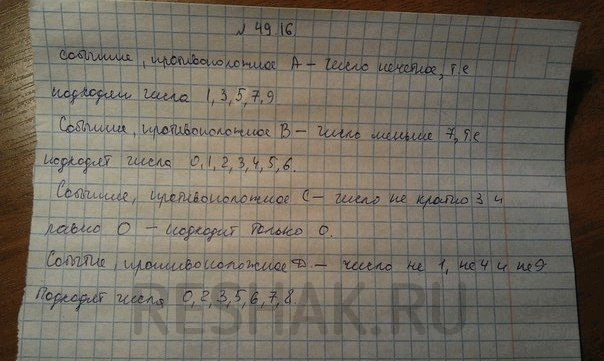 № 49.16.
Событие, противоположное А – число нечетное, т.е
подходят числа 1,3,5,7,9
Событие, противоположное В – число меньше 7, т.е
подходят числа 0,1,2,3,4,5,6.
Событие, противоположное С – число не кратно 3 и
равно 0 – подходит только 0.
Событие, противоположное D – число не 1, не 4 и не 9
Подходят числа 0,2,3,5,6,7,8
RESHAK.RU